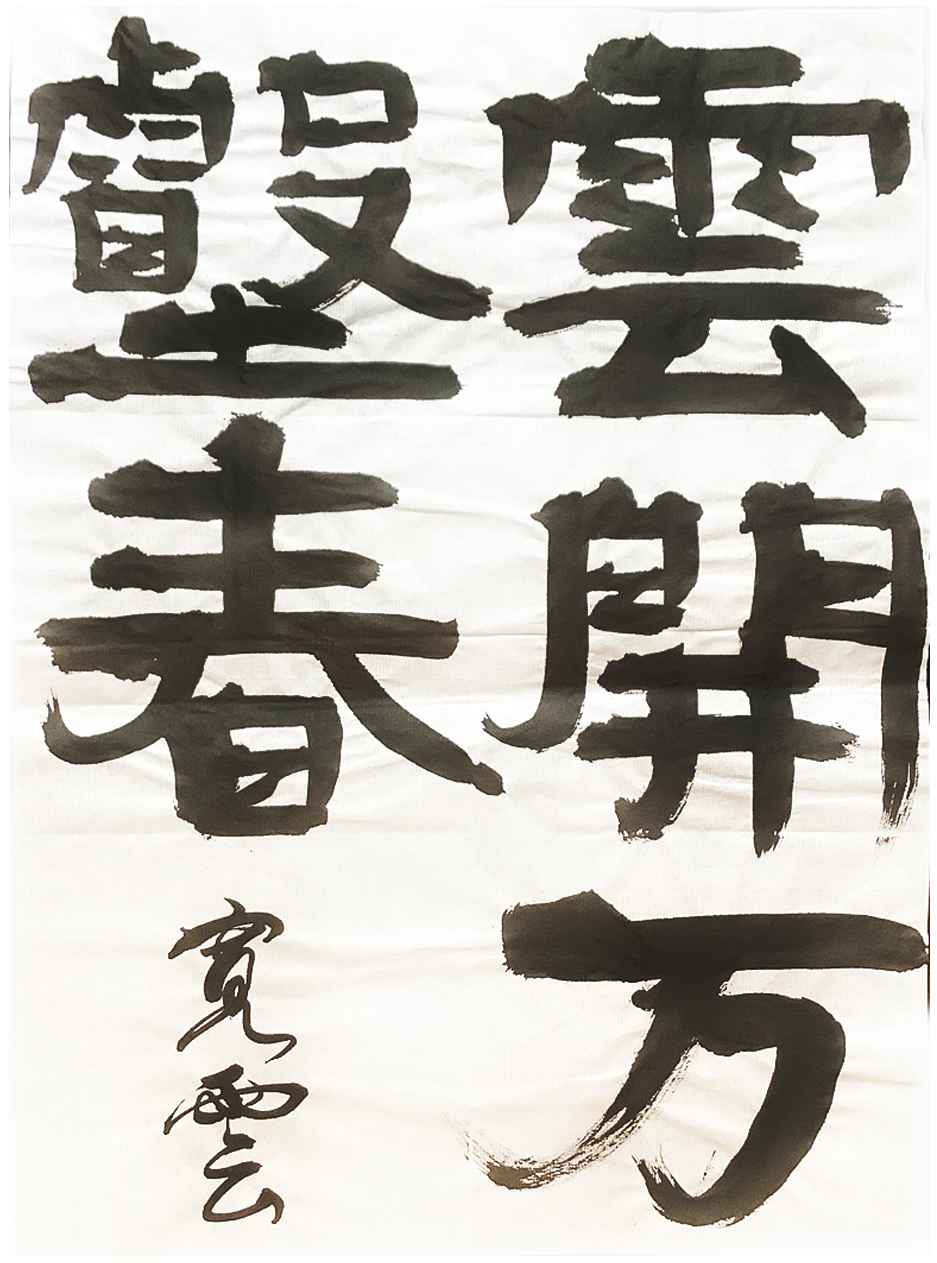 雲開万
壑春
寛雲